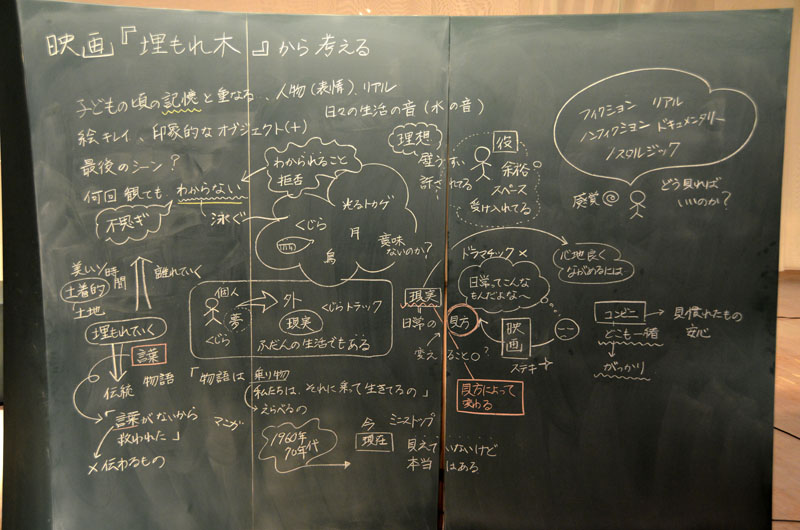 映画『埋もれ木』から考える
子どもの頃の記憶と重なる、人物(表情)、リアル
日々の生活の音(水の音)
絵キレイ、印象的なオブジェクト(+)
最後のシーン?
何回観てもわからない
不思ギ
泳ぐ
わかられること
拒否
光るトカゲ
くじら
月
鳥
意味
ないのか?
理想
壁うすい
許されてる
役
余裕
スペース
受け入れてる
フィクション リアル
ノンフィクション ドキュメンタリー
ノスタルジック
感覚
どう見れば
いいのか?
美しい 時間
離れていく
土着的
土地
埋もれていく
言葉
伝統 物語
「言葉がないから
救われた」
×伝わるもの
個人
夢
くじら
外
現実
くじらトラック
ふだんの生活でもある
「物語は乗り物
私たちは、それに乗って生きてるの」
えらべるの
マンガ
1960年
70年代
今
現在
ミニストップ
見えていないけど
本当はある
現実
日常の
見方
変えること○?
ドラマチック×
日常ってこんな
もんだよな〜
映画
ステキ
見方によって
変わる
心地良く
ながめるには
コンビニ
どこも一緒
がっかり
見慣れたもの
安心